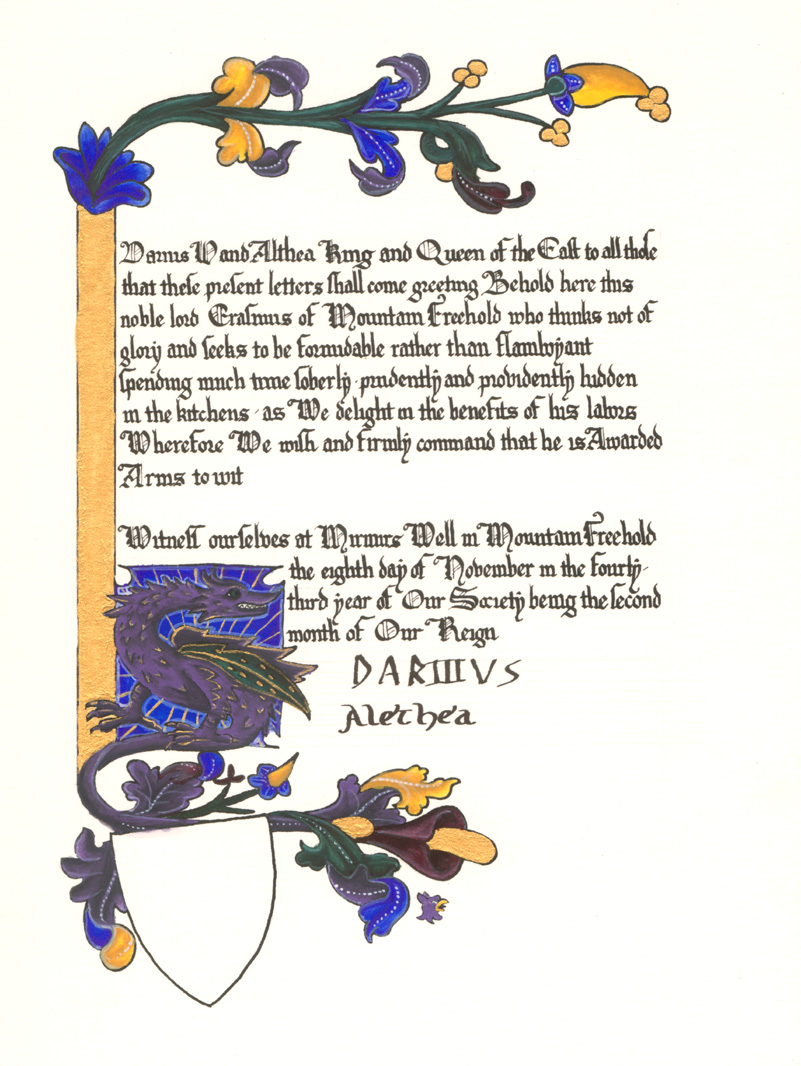 Darius V and Alethea King and Queen of the East to all those
that these present letters shall come greeting Behold here this
noble lord Erasmus of Mountain Freehold who thinks not of
glory and seeks to be formidable rather than flamboyant
spending much time soberly · prudently and providently hidden
in the kitchens · as We delight in the benefits of his labors
Wherefore We wish and firmly command that he is Awarded
Arms to wit
Witness ourselves at Mimirs Well in Mountain Freehold
the eighth day of November in the fourty-
third year of Our Society being the second
month of Our Reign
DARIIIVS
Alethea